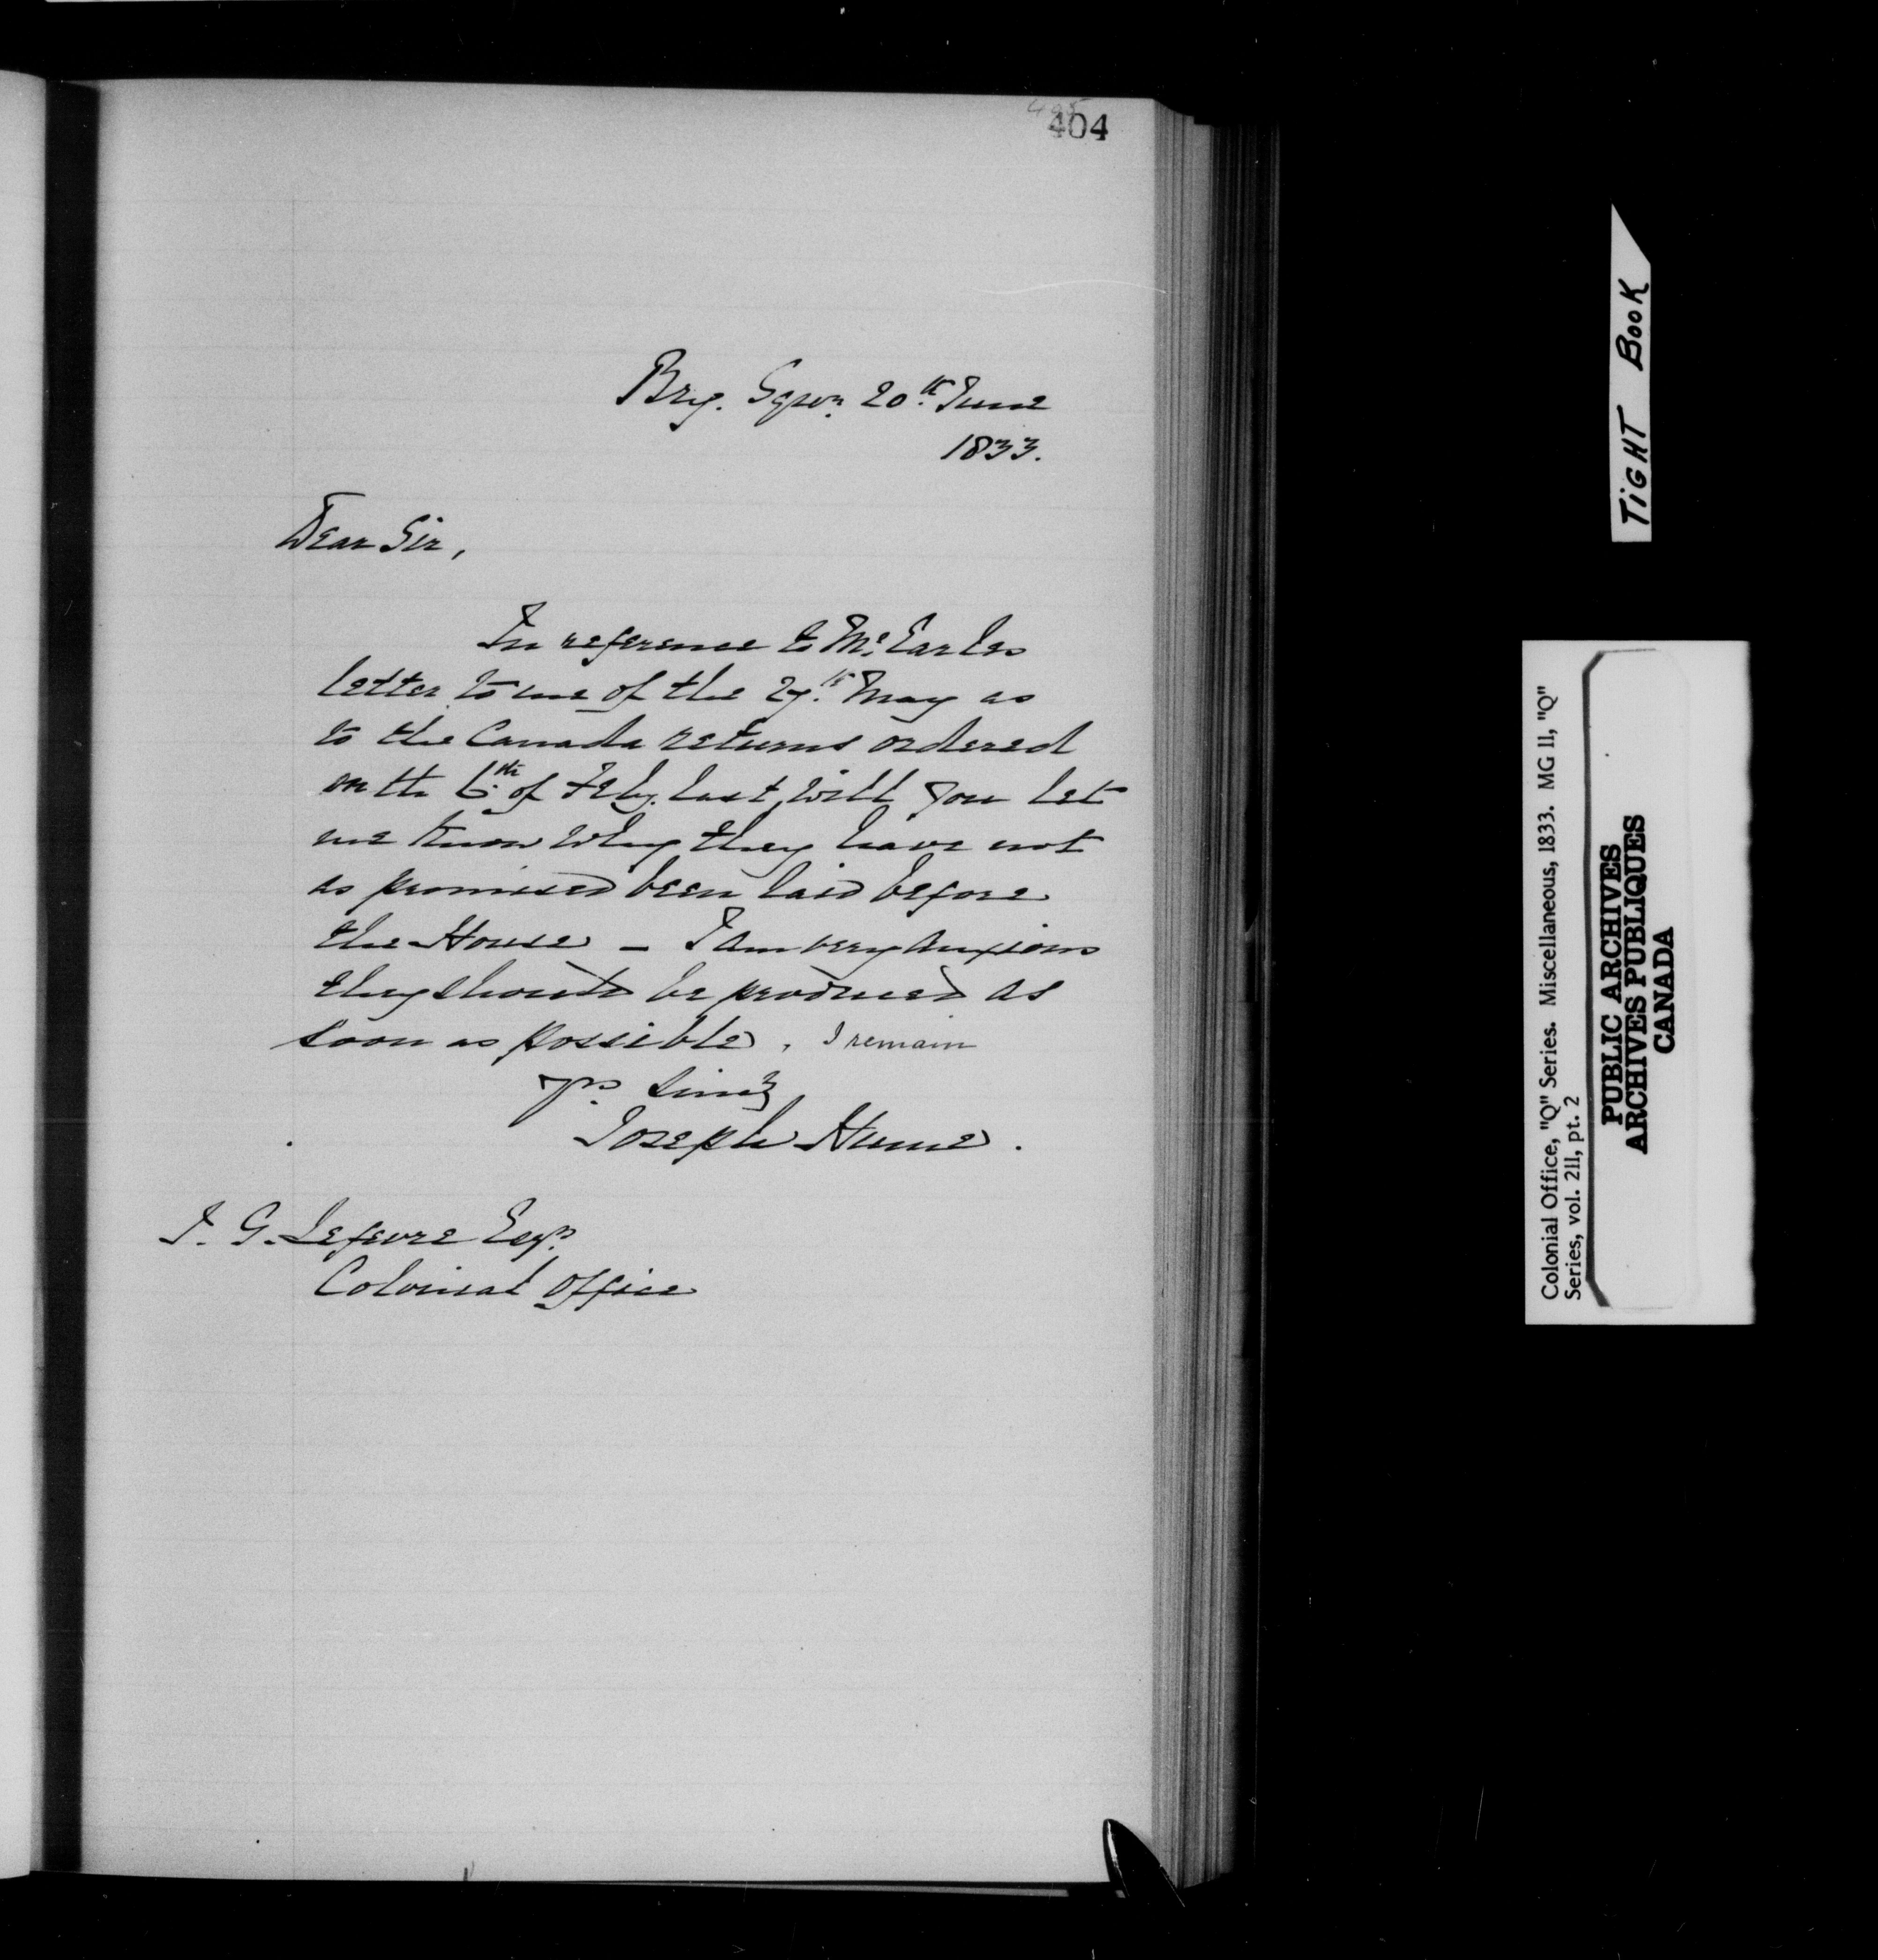 404
Bry. Sqre. 20th June
1833.
Dear Sir,
In reference to Mr. Earles
letter to me of the 27th May as
to the Canada returns ordered
on the 6th of Feby. last, will you let
me know why they have not
as promised been laid before
the House – I am very anxious
they should be produced as
soon as possible. I remain
yrs.
Joseph Hume.
J. G. Lefevre Esqr.
Colonial Office
TIGHT BOOK
Colonial Office, "Q" Series. Miscellaneous, 1833. MG 11, "Q"
Series, vol. 211, pt. 2
PUBLIC ARCHIVES
ARCHIVES PUBLIQUES
CANADA